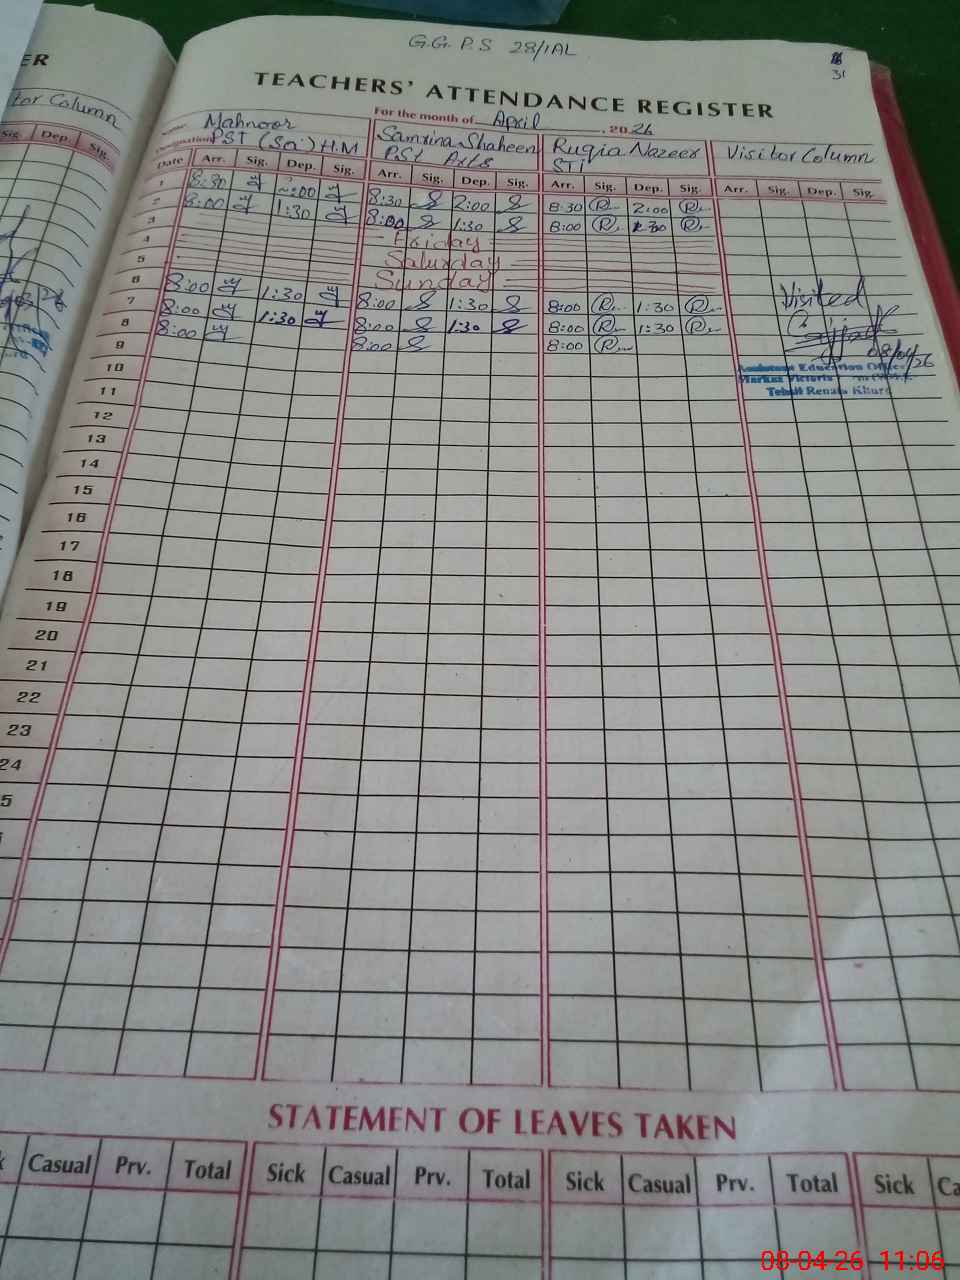 G.G.P.S 28/1AL
31
ER
TEACHERS' ATTENDANCE REGISTER
For the month of April, 2026
tor Column
Name Mahnoor Samrina Shaheen Ruqia Nazeer Visitor Column
Designation PST (Sa) H.M PST STI
Sig. Dep. Sig.
Date Arr. Sig. Dep. Sig. Arr. Sig. Dep. Sig. Arr. Sig. Dep. Sig. Arr. Sig. Dep. Sig.
1 8:30 2:00 8:30 2:00 8:30 R 2:00 R
2 8:00 1:30 8:00 1:30 8:00 R 1:30 R
3 Friday
4 Saturday
5 Sunday
6 8:00 1:30 8:00 1:30 8:00 R 1:30 R
7 8:00 1:30 8:00 1:30 8:00 R 1:30 R
8 8:00 8:00 8:00 R
9
Visited
08/04/26
Assistant Education Officer
Markaz Victoria
Tehsil Renala Khurd
10
11
12
13
14
15
16
17
18
19
20
21
22
23
24
5
STATEMENT OF LEAVES TAKEN
k Casual Prv. Total Sick Casual Prv. Total Sick Casual Prv. Total Sick Ca
08-04-26 11:06